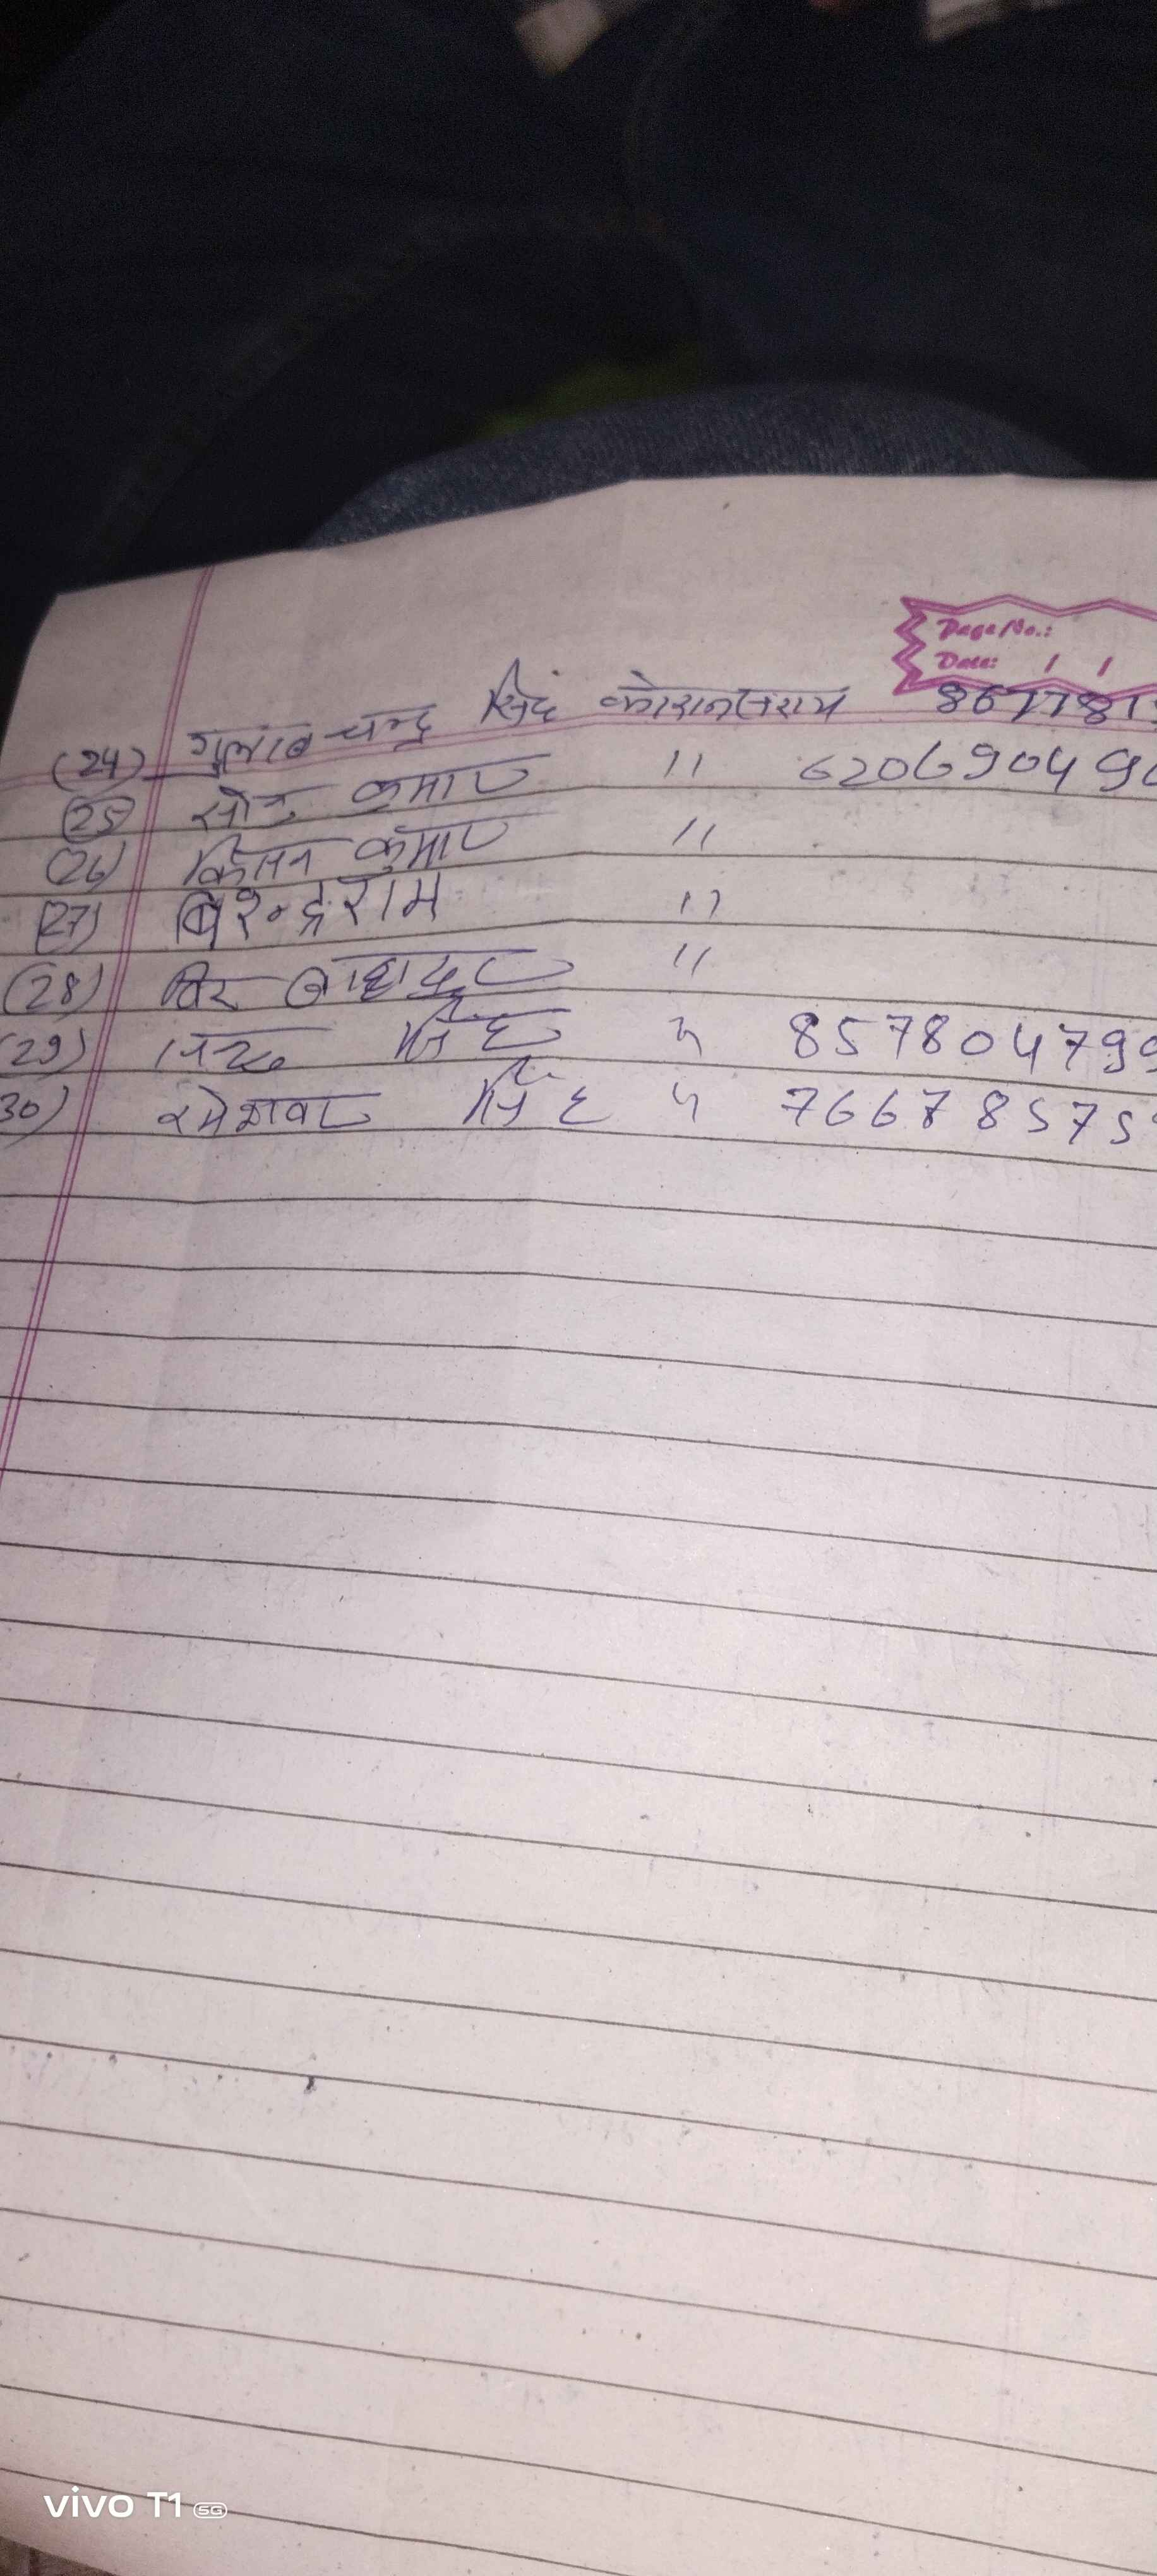 Page No.:
Date: / /
(24) गुलाब चन्द्र सिंह कोरानसराय 867781
(25) कुमार 11 620690496
(26) किसन कुमार 11
(27) बिरेन्द्र राम 11
(28) विर बाहादुर 11
(29) सिंह " 857804799
30) रामेशवर सिंह " 76678575
vivo T1 5G